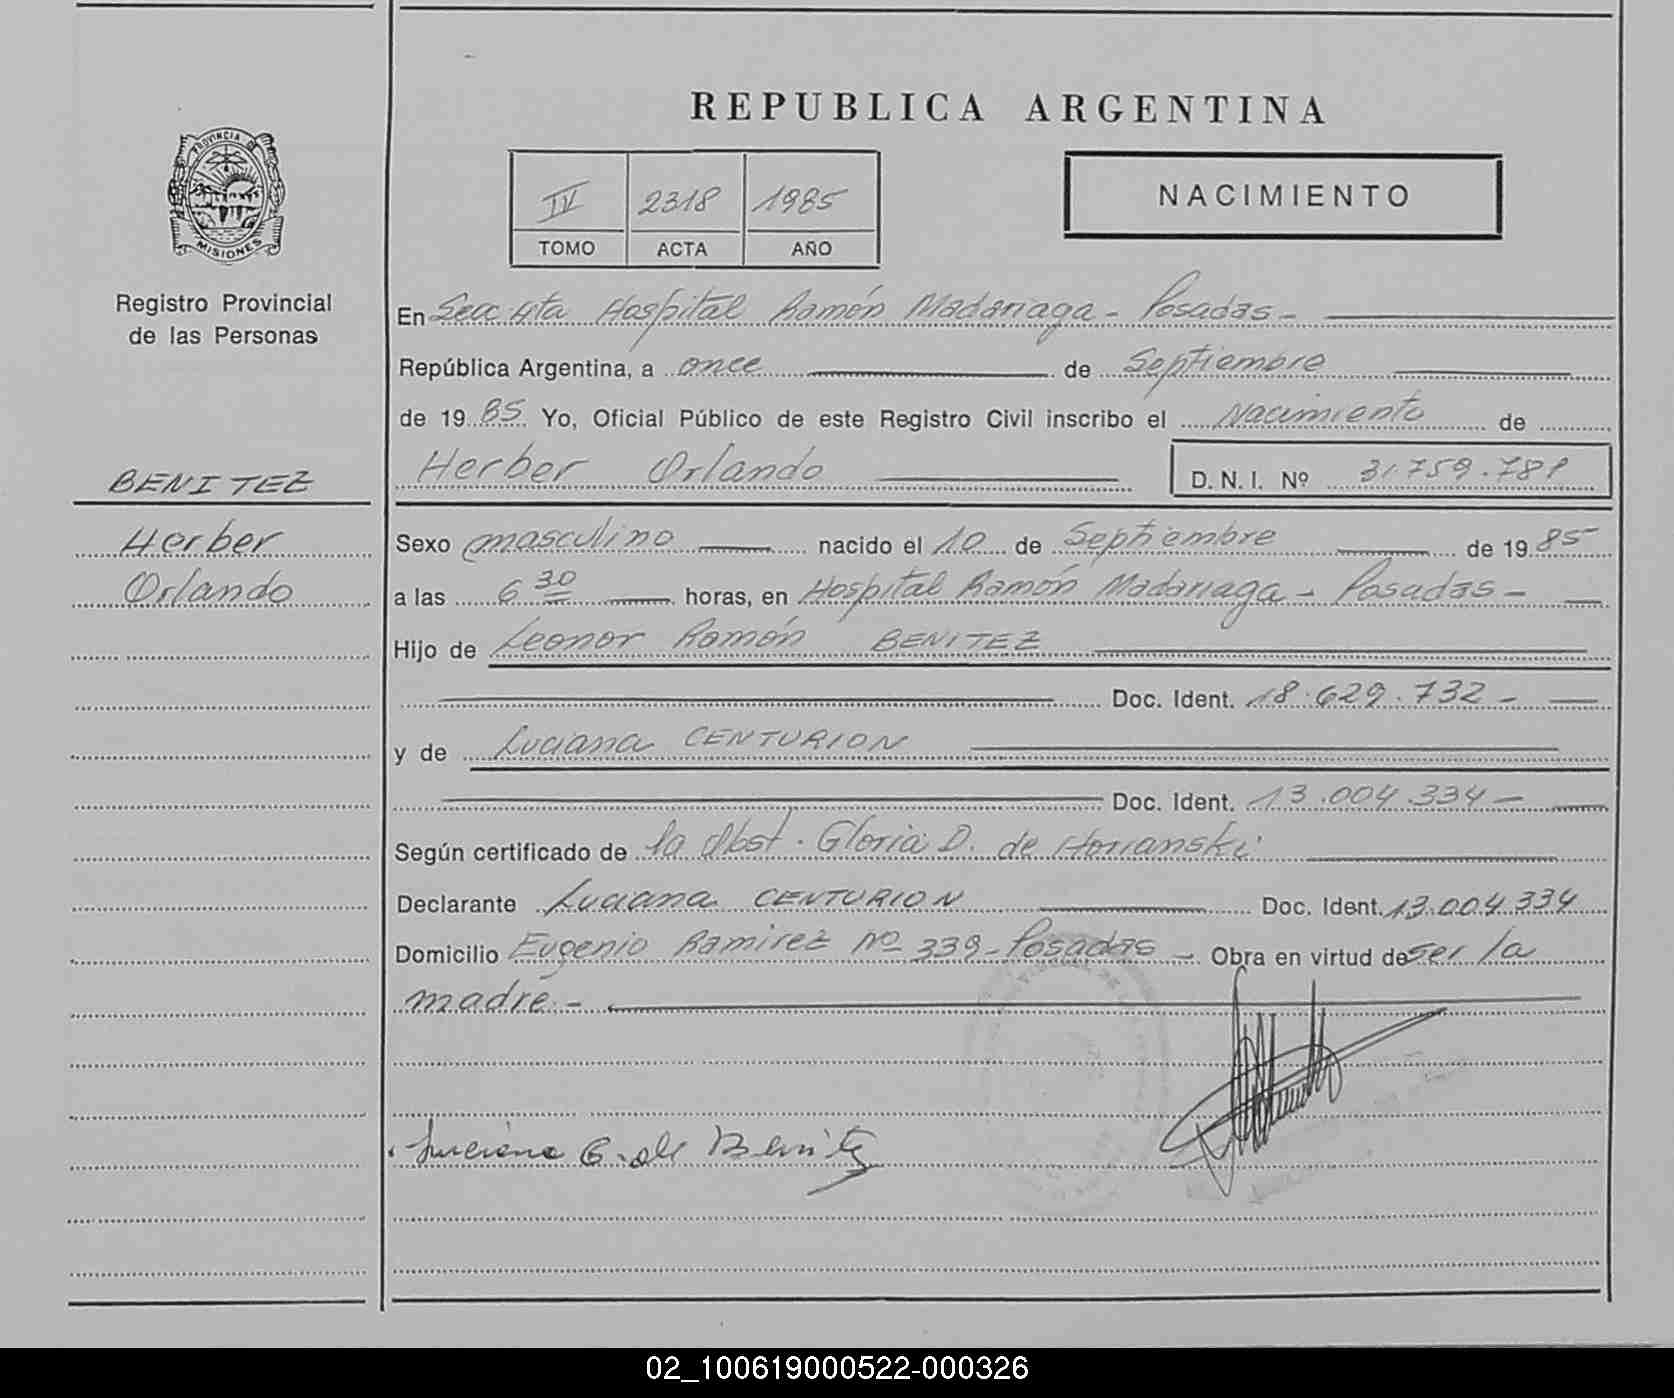 REPUBLICA ARGENTINA
PROVINCIA DE
MISIONES
Registro Provincial
de las Personas
IV 2318 1985
TOMO ACTA AÑO
NACIMIENTO
En Secc 4ta Hospital Ramón Madariaga - Posadas -
República Argentina, a once de Septiembre
de 1985 Yo, Oficial Público de este Registro Civil inscribo el Nacimiento de
Herber Orlando D.N.I. Nº 31.759.789
BENITEZ
Herber
Orlando
Sexo masculino nacido el 10 de Septiembre de 1985
a las 6 30 horas, en Hospital Ramón Madariaga - Posadas -
Hijo de Leonor Ramón BENITEZ
Doc. Ident. 18.629.732 -
y de Luciana CENTURION
Doc. Ident. 13.004.334 -
Según certificado de la Obst. Gloria D. de
Declarante Luciana CENTURION Doc. Ident. 13.004.334
Domicilio Eugenio Ramirez Nº 339 - Posadas - Obra en virtud de ser la
madre. -
Luciana C. de Benitez
02_100619000522-000326